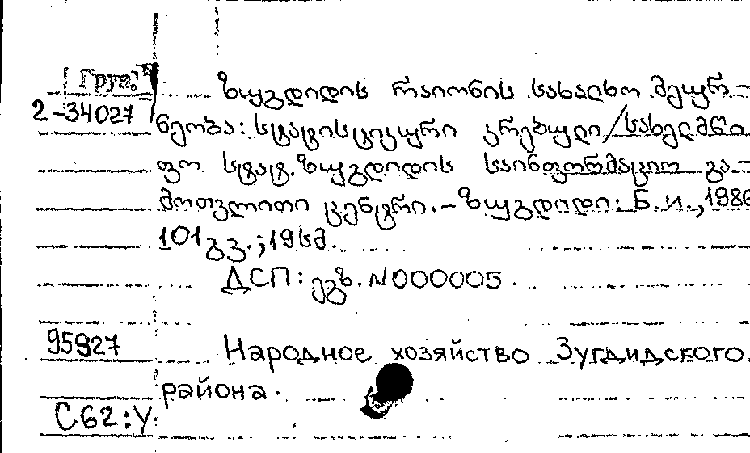 [Груз.]
ზუგდიდის რაიონის სახალხო მეურ-
2-34027
ნეობა: სტატისტიკური კრებული/სახელმწი
ფო სტატ. ზუგდიდის საინფორმაციო გა-
მოთვლითი ცენტრი.-ზუგდიდი: Б.и.,1986
101გვ.;19სმ.
ДСП: ეგზ. N000005
95927
Народное хозяйство Зугдидского
района.
С62:У